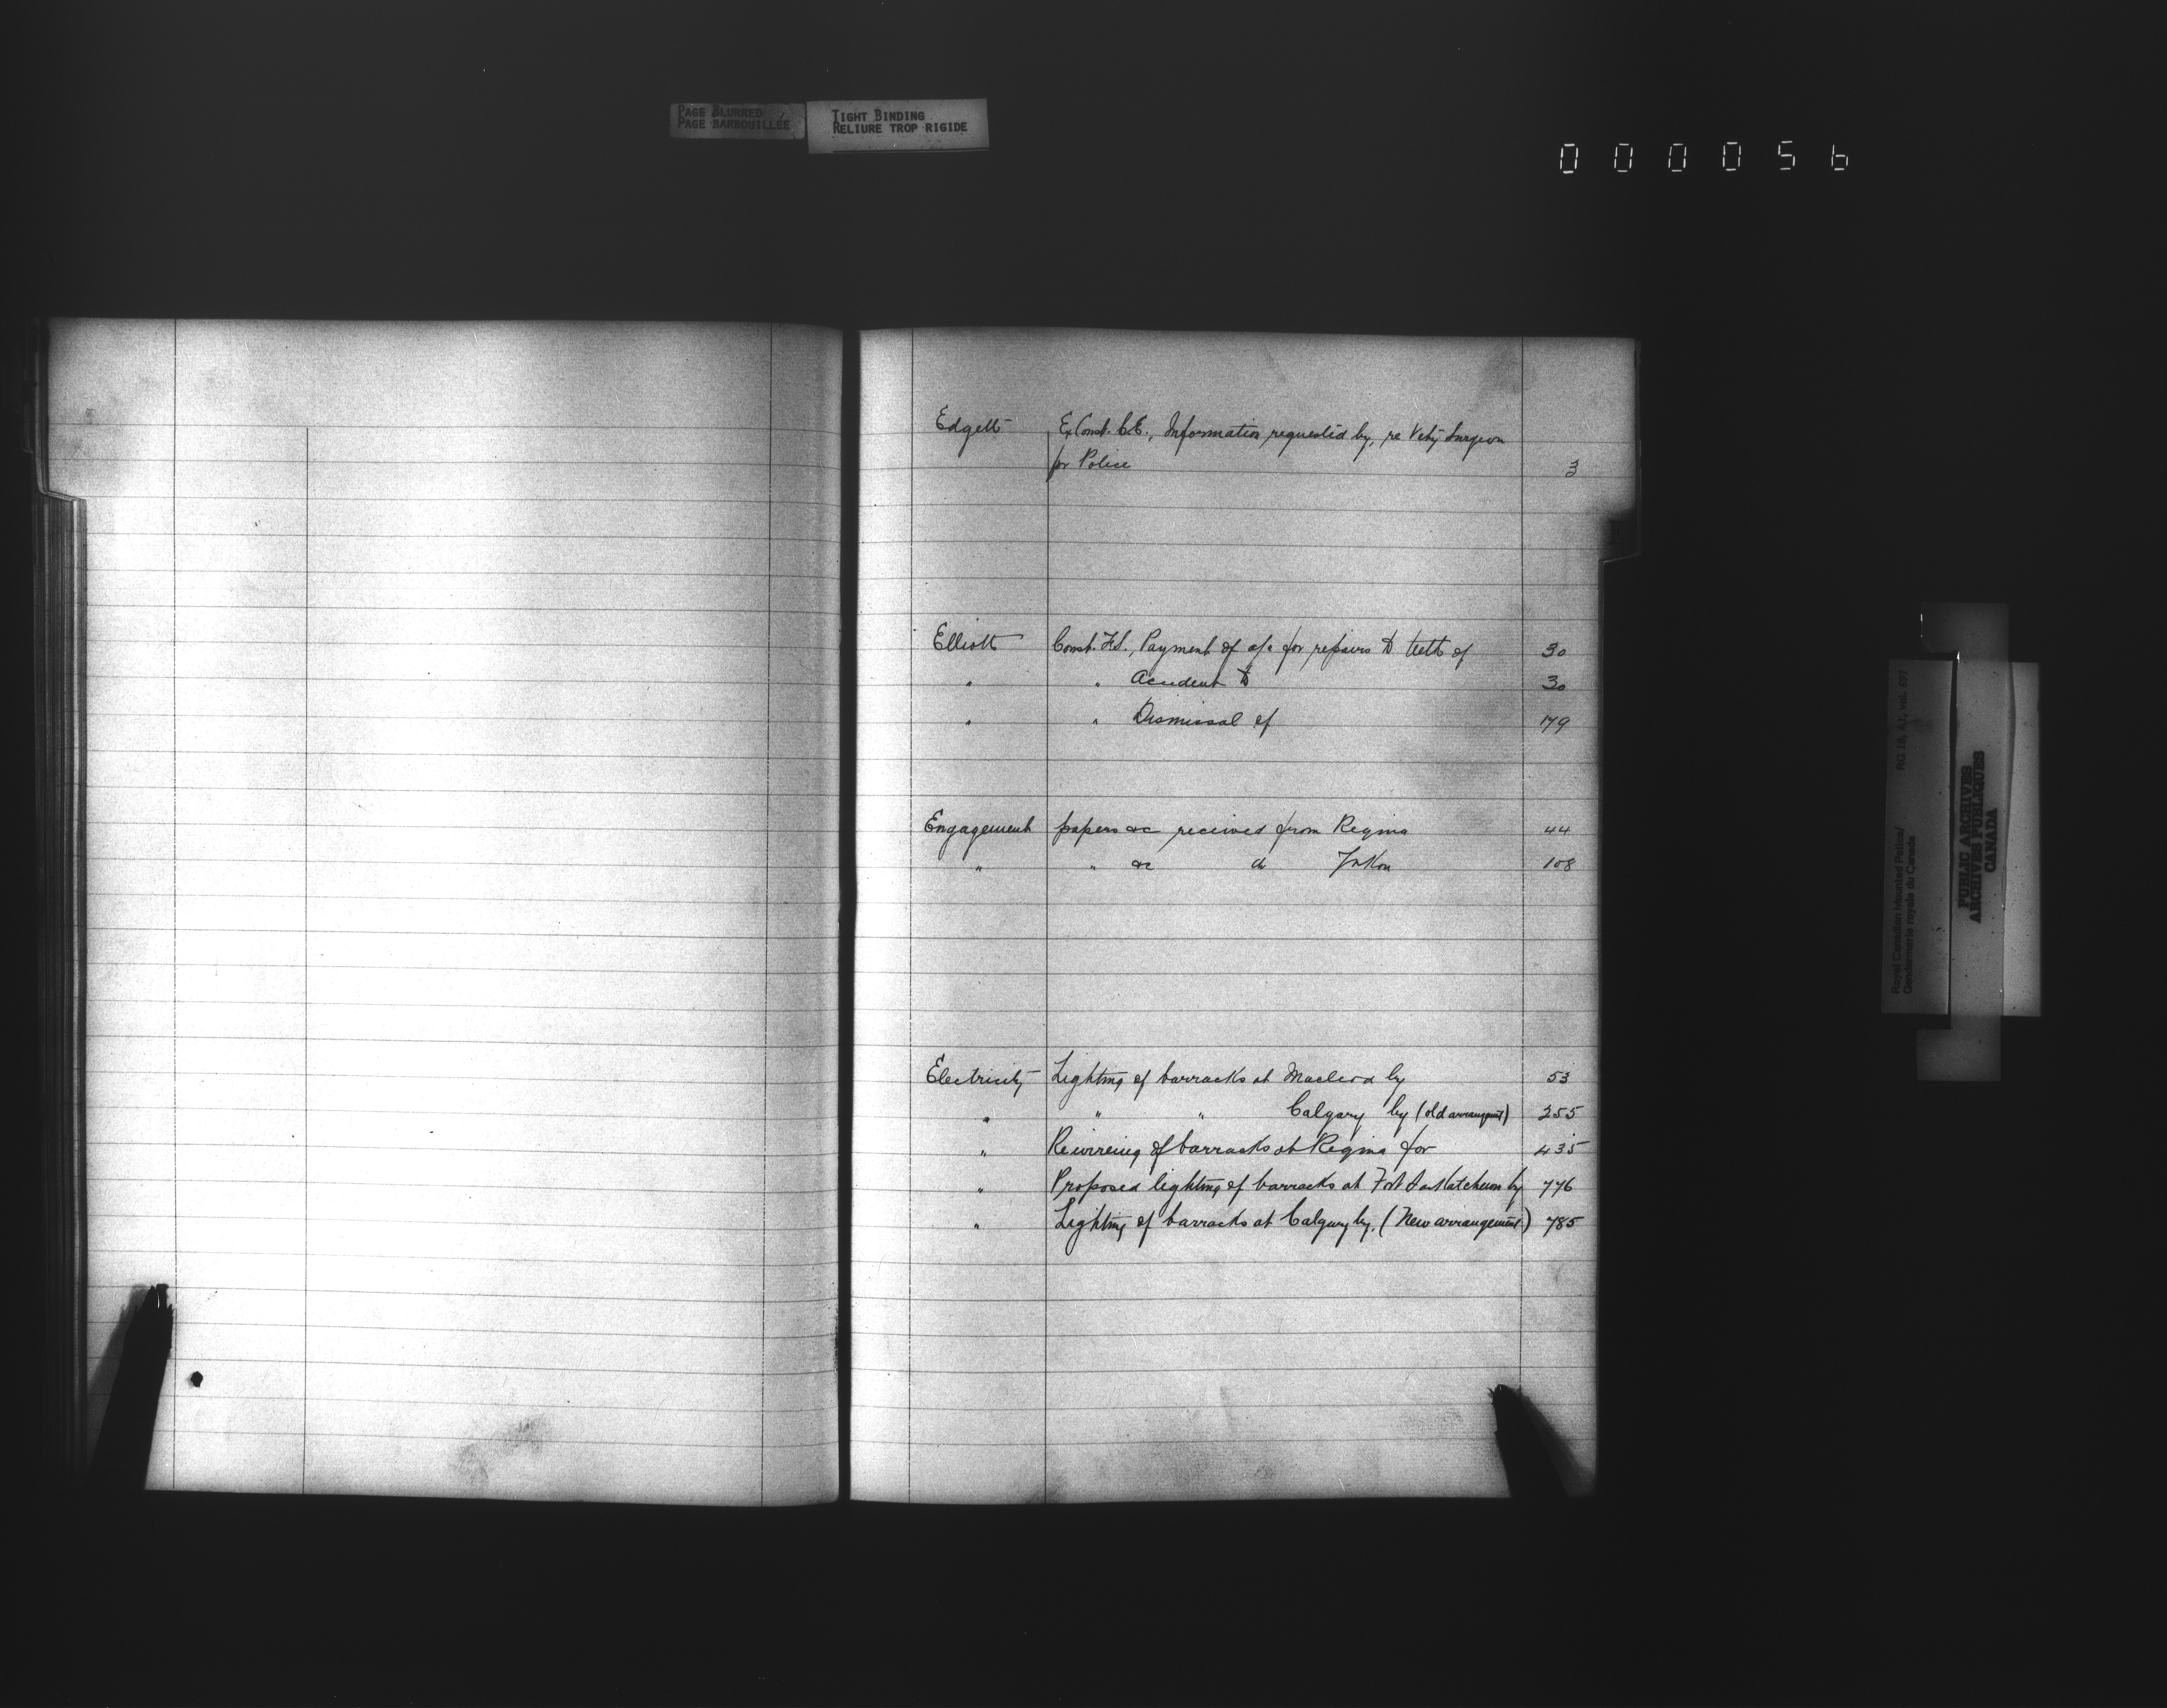 PAGE BLURRED
PAGE BARBOUILLÉE
TIGHT BINDING
RELIURE TROP RIGIDE
000056
Edgett Ex Const. C.E., Information requested by, re Vety Surgeon
for Police 3
Elliott Const. , Payment of a/c for repairs to teeth of 30
" " Accident to 30
" " Dismissal of 179
Engagement papers &c received from Regina 44
" " &c do Yukon 108
Electricity Lighting of barracks at Macleod by 53
" " " Calgary by (old arrangemt) 255
" Rewireing of barracks at Regina for 435
" Proposed lighting of barracks at Fort Saskatchewan by 776
" Lighting of barracks at Calgary by. (New arrangement) 785
Royal Canadian Mounted Police/
Gendarmerie royale du Canada
RG 18, A1, vol. 697
PUBLIC ARCHIVES
ARCHIVES PUBLIQUES
CANADA